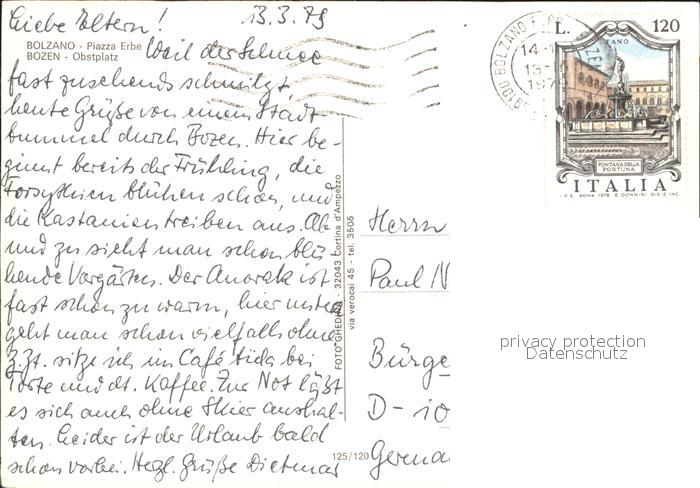 Liebe Eltern! 13.3.79
BOLZANO - Piazza Erbe
BOZEN - Obstplatz
Weil der Schnee
fast zusehends schmilgt,
heute Grüße von einem Stadt
bummel durch Bozen. Hier be-
ginnt bereits der Frühling, die
Forsythien blühen schon, und
die Kastanien treiben aus. Ab
und zu sieht man schon blü-
hende Vorgärten. Der Anorak ist
fast schon zu warm, hier unten
geht man schon vielfach ohne.
Z.Zt. sitze ich im Café bei
Torte und dt. Kaffee. Zur Not läßt
es sich auch ohne Skier aushal-
ten. Leider ist der Urlaub bald
schon vorbei. Herzl. Grüße Dietmar
FOTO GHEDINA - 32043 Cortina d'Ampezzo
via verocai 45 - tel. 3506
125/120
Herrn
Paul N
Bürge
D-10
Germa
39100 BOLZANO
14-
13-
197
L. 120
FONTANA DELLA
FORTUNA
ITALIA
I.P.S. ROMA 1978 E. DONNINI DIS. E INC.
privacy protection
Datenschutz